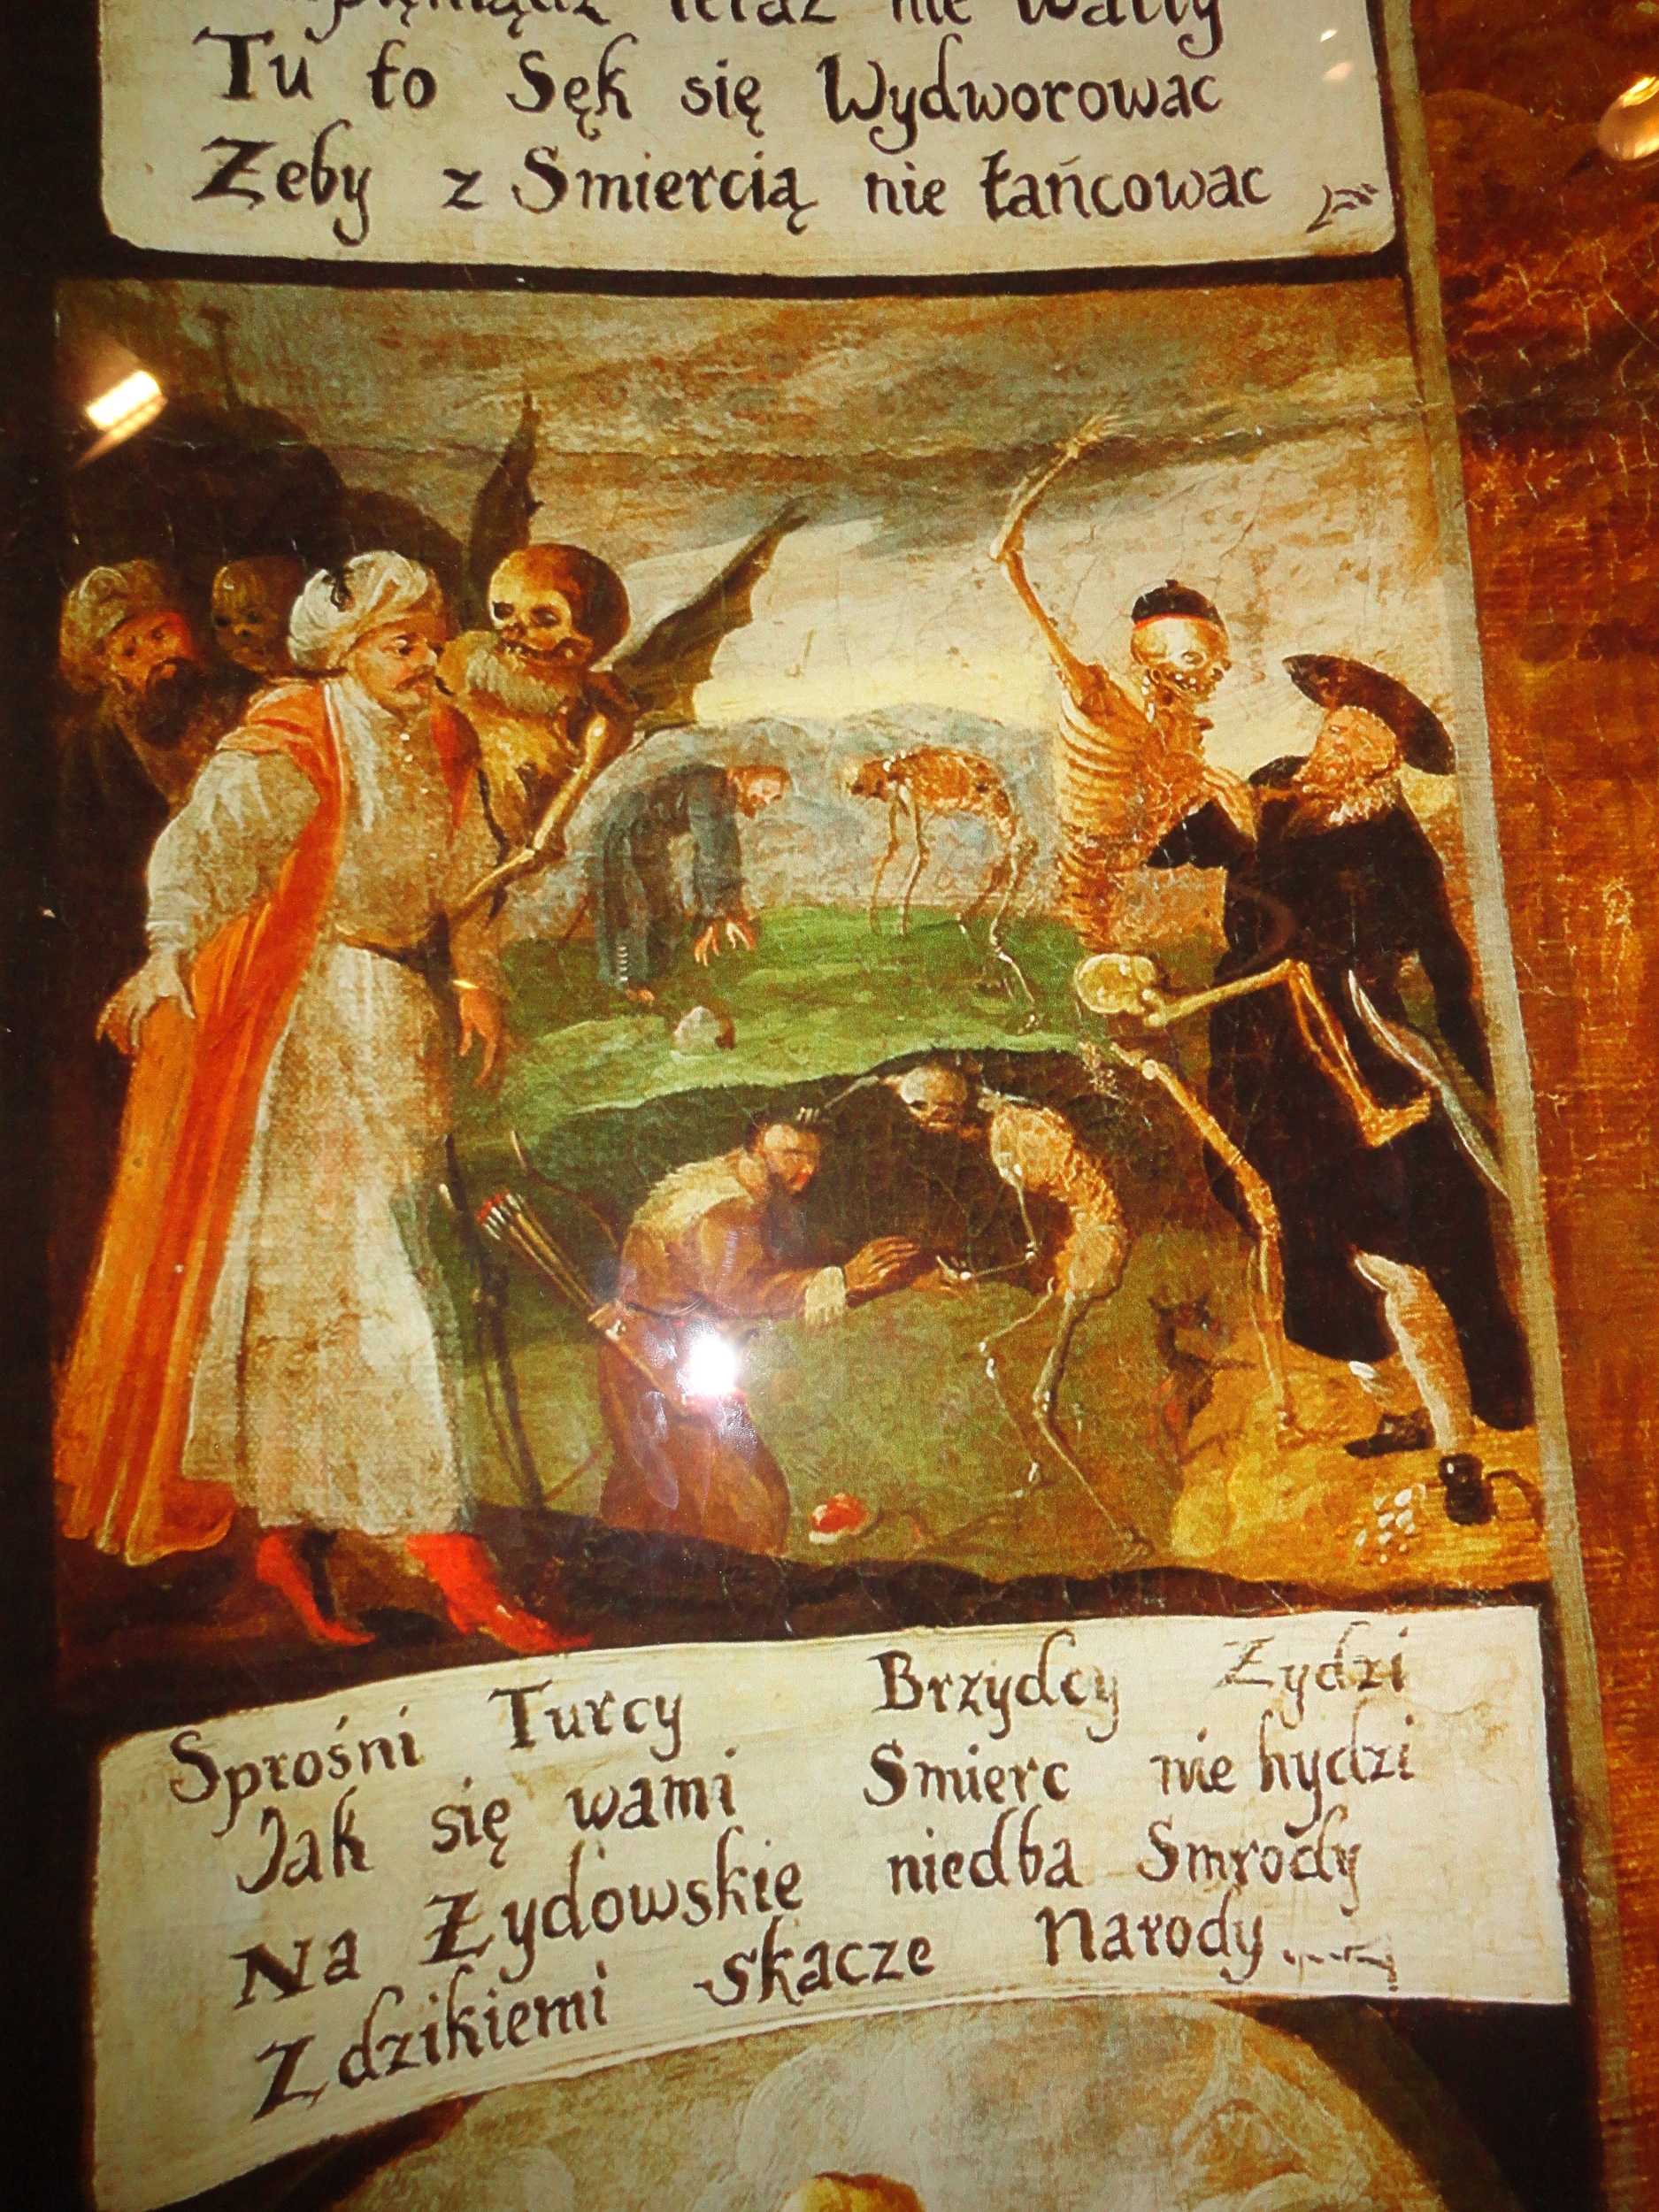 teraz nie
Tu to Sęk się Wydworowac
Zeby z Smiercią nie tańcowac
Sprośni Turcy Brzydcy Zydzi
Jak się wami Smierc nie hydzi
Na Zydowskie niedba Smrody
Z dzikiemi skacze Narody